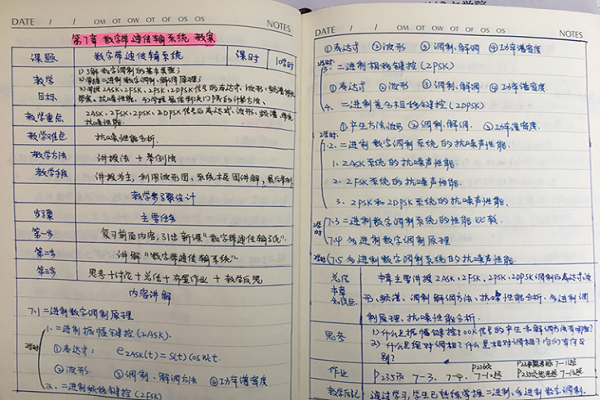 DATE / / OM OT OW OT OF OS OS NOTES
第7章 数字带通传输系统 教案
课题 数字带通传输系统 课时 10学时
教学目标
1) 了解数字调制的基本类型;
2) 掌握二进制数字调制、解调原理;
3) 掌握2ASK、2FSK、2PSK、2DPSK信号的表达式、波形、频谱
教学重点 2ASK、2FSK、2PSK、2DPSK信号的表达式、波形、频谱
抗噪性能
教学难点 抗噪性能分析.
教学方法 讲授法 + 举例法
教学手段 讲授为主, 利用波形图、系统框图讲解
教学步骤设计
步骤 主要任务
第一步 复习前面内容, 引出新课“数字带通传输系统”.
第二步 讲解“数字带通传输系统”
第三步 思考+讨论+总结+布置作业+教学反思
内容讲解
7.1 二进制数字调制原理
1. 二进制振幅键控(2ASK).
①表达式: e2ASK(t)=S(t)cosωct.
②波形 ③调制、解调方法 ④功率谱密度
2. 二进制频移键控(2FSK)
DATE / / OM OT OW OT OF OS OS NOTES
①表达式 ②波形 ③调制、解调 ④功率谱密度
3. 二进制相移键控(2PSK)
①表达式 ②波形 ③调制、解调 ④功率谱密度
4. 二进制差分相移键控(2DPSK)
①产生方法、波形 ②调制、解调 ③功率谱密度
7.2. 二进制数字调制系统的抗噪声性能.
1. 2ASK系统的抗噪声性能.
2. 2FSK系统的抗噪声性能.
3. 2PSK和2DPSK系统的抗噪声性能.
7.3 二进制数字调制系统的性能比较.
7.4 多进制数字调制原理
7.5 多进制数字调制系统的抗噪声性能.
总结 本章主要讲授2ASK、2FSK、2PSK、2DPSK调制的表达式、波
形、频谱、调制解调方法、抗噪性能分析. 多进制调
制原理、抗噪性能分析.
思考 1) 什么是振幅键控? OOK信号的产生和解调方法有哪些?
2) 什么是绝对调相? 什么是相对调相? 它们有何区
别?
作业 P235页 7-3、7-4
教学反思 通过学习, 学生已能掌握二进制、多进制数字调制.